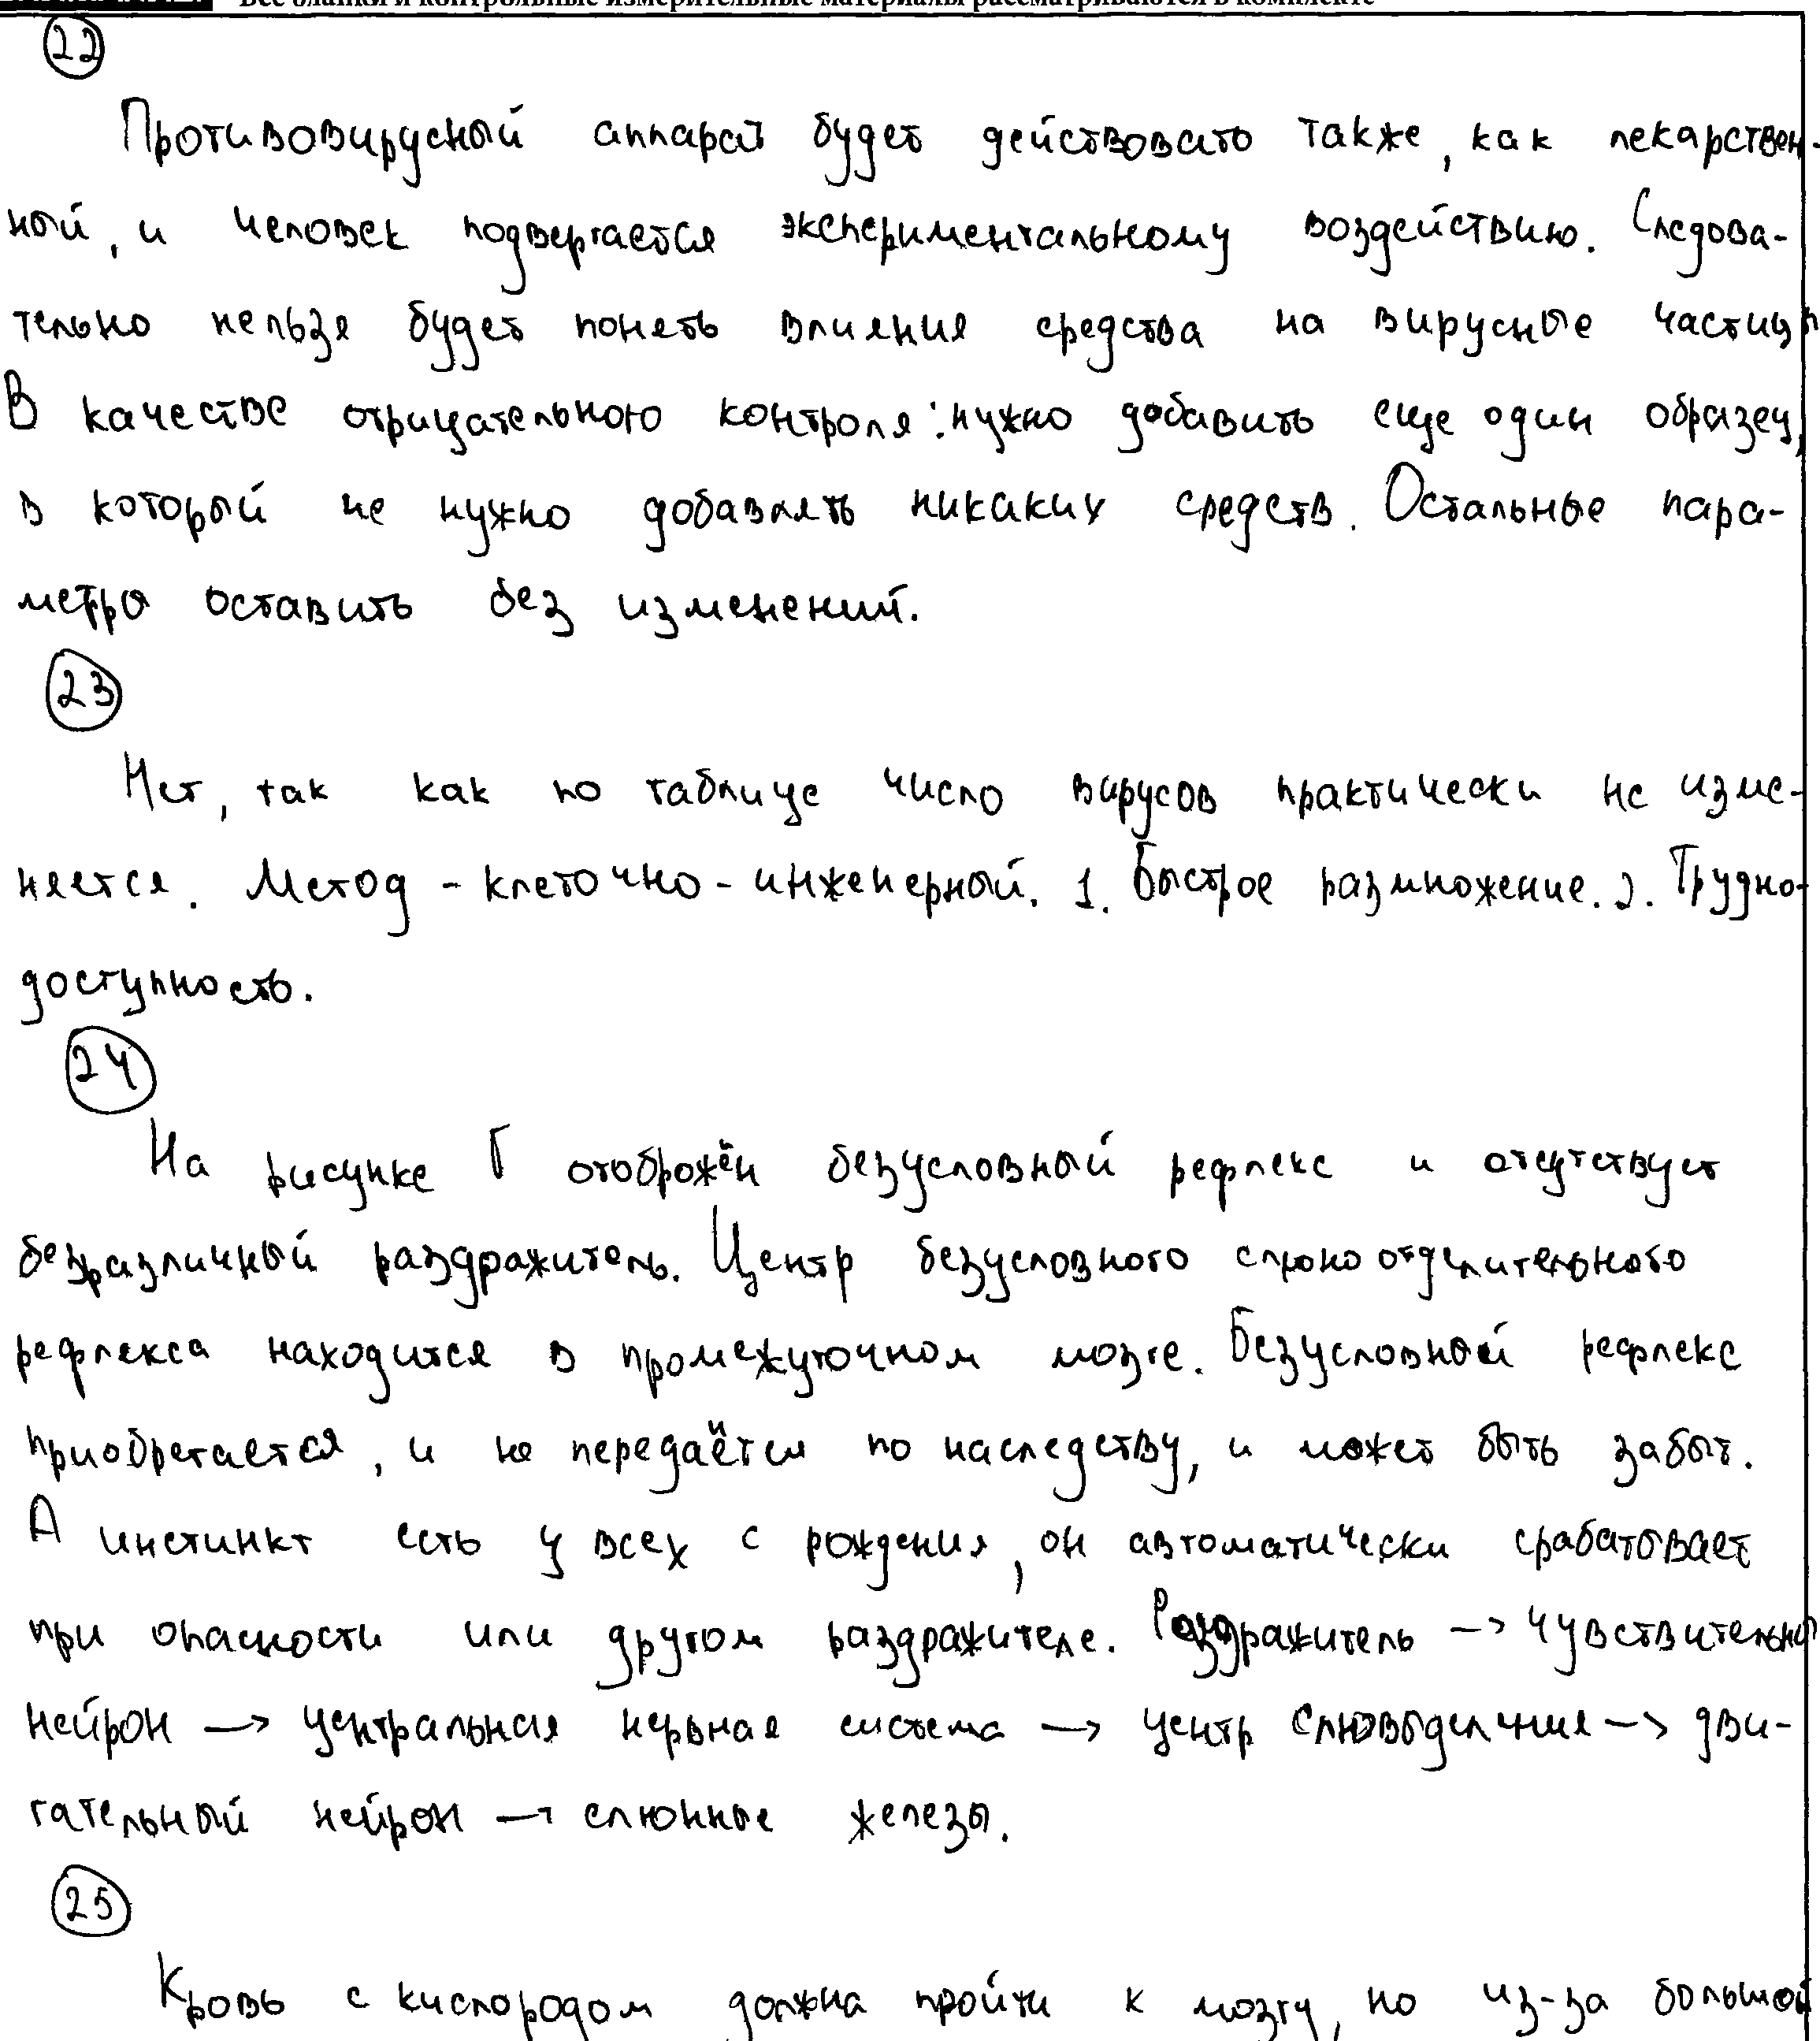 Все бланки и контрольные измерительные материалы рассматриваются в комплекте
22
Противовирусный аппарат будет действовать также, как лекарствен-
ный, и человек подвергается экспериментальному воздействию. Следова-
тельно нельзя будет понять влияния средства на вирусные частицы
В качестве отрицательного контроля: нужно добавить еще один образец,
в который не нужно добавлять никаких средств. Остальные пара-
метры оставить без изменений.
23
Нет, так как по таблице число вирусов практически не изме-
няется. Метод - клеточно-инженерный. 1. Быстрое размножение. 2. Трудно-
доступность.
24
На рисунке Г отоброжён безусловный рефлекс и отсутствует
безразличный раздражитель. Центр безусловного слюноотделительного
рефлекса находится в промежуточном мозге. Безусловный рефлекс
приобретается, и не передаётся по наследству, и может быть забыт.
А инстинкт есть у всех с рождения, он автоматически срабатывает
при опасности или другом раздражителе. Раздражитель → чувствительный
нейрон → центральная нервная система → центр слюновыделения → дви-
гательный нейрон → слюнные железы.
25
Кровь с кислородом должна пройти к мозгу, но из-за большой